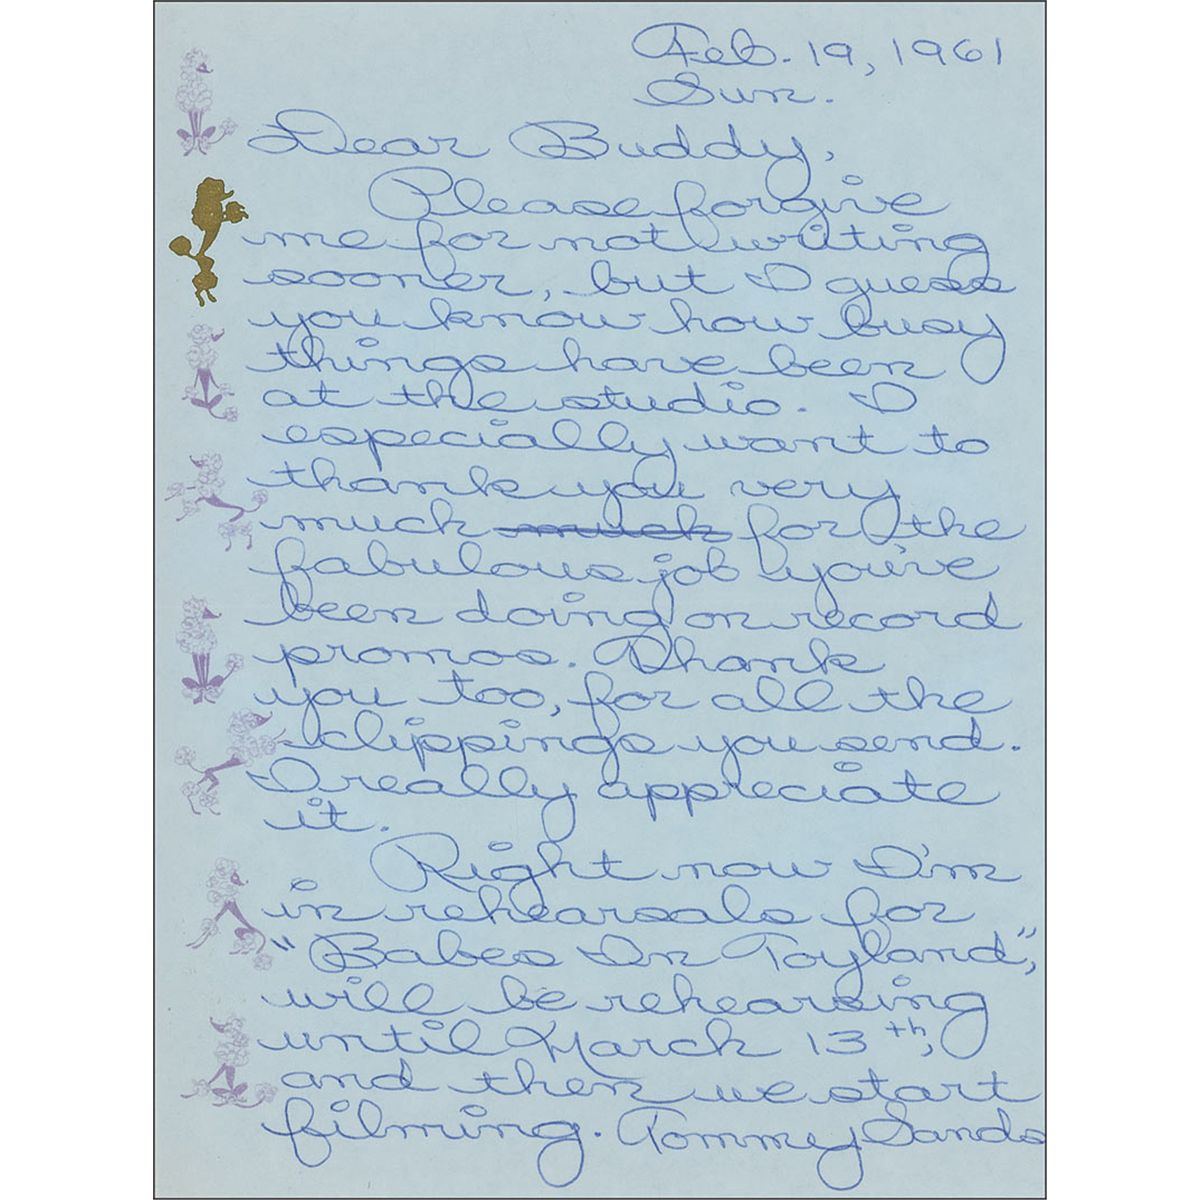 Feb. 19, 1961
Sun.
Dear Buddy,
Please forgive
me for not writing
sooner, but I guess
you know how busy
things have been
at the studio. I
especially want to
thank you very
much much for the
fabulous job you've
been doing on record
promos. Thank
you too, for all the
clippings you send.
I really appreciate
it.
Right now I'm
in rehearsals for
"Babes In Toyland",
will be rehearsing
until March 13th,
and then we start
filming. Tommy Sands